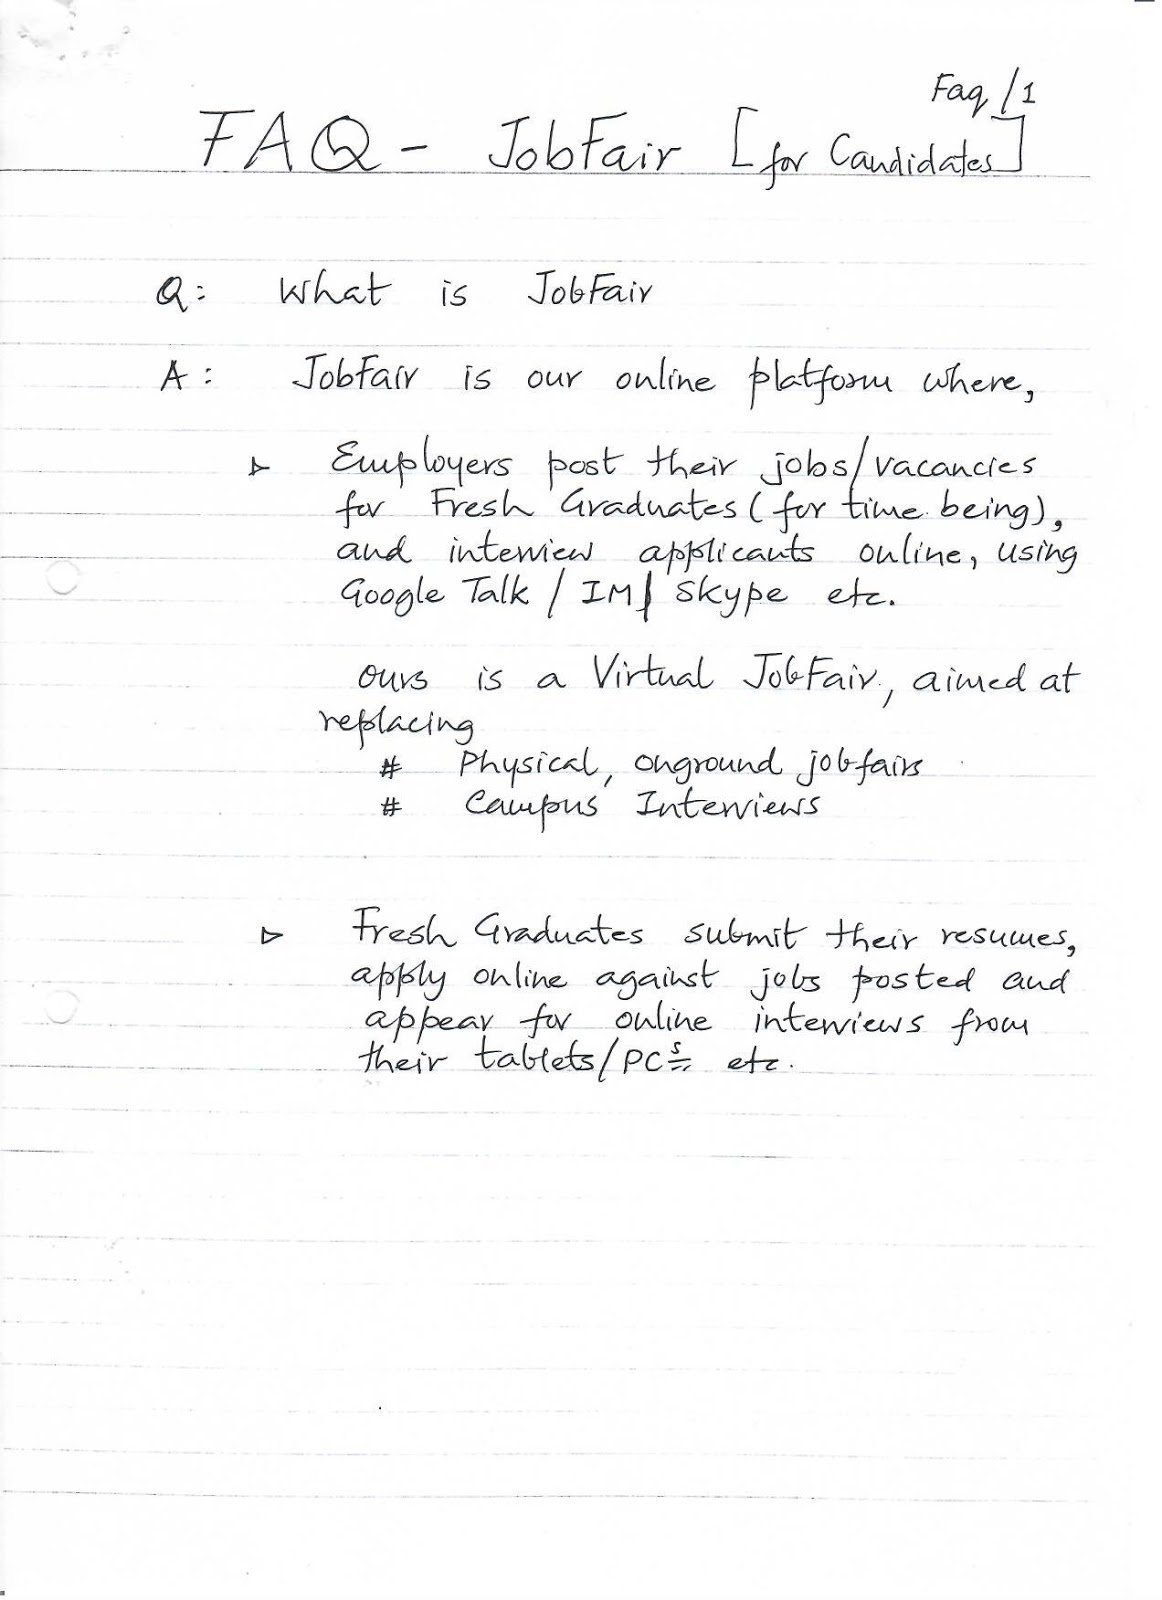 Faq/1
FAQ - JobFair [for Candidates]
Q: What is JobFair
A: JobFair is our online platform where,
▷ Employers post their jobs/vacancies
for Fresh Graduates (for time being),
and interview applicants online, using
Google Talk / IM / Skype etc.
Ours is a Virtual JobFair, aimed at
replacing
# Physical, onground jobfairs
# Campus Interviews
▷ Fresh Graduates submit their resumes,
apply online against jobs posted and
appear for online interviews from
their tablets/PCs etc.